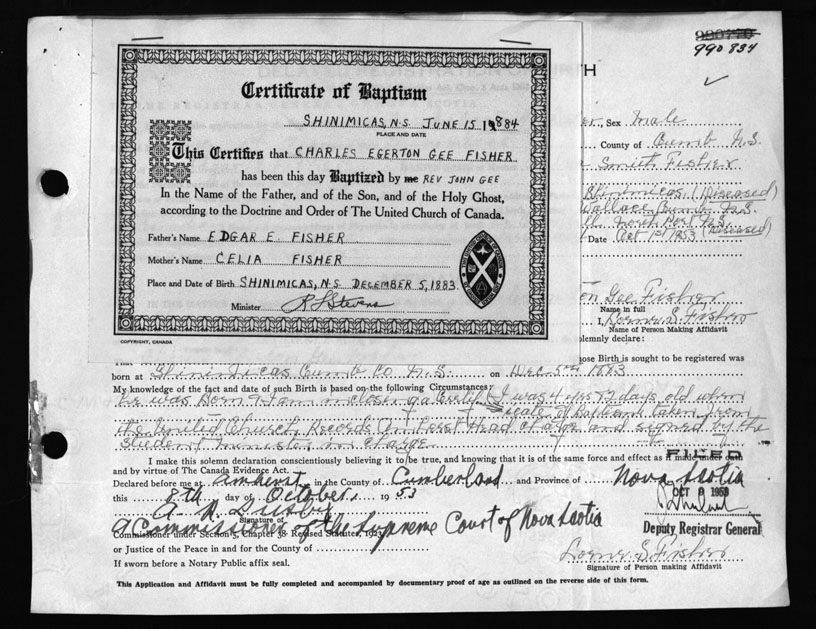 990770
990834
Certificate of Baptism
SHINIMICAS, N.S JUNE 15 1884
PLACE AND DATE
This Certifies that CHARLES EGERTON GEE FISHER
has been this day Baptized by me REV JOHN GEE
In the Name of the Father, and of the Son, and of the Holy Ghost,
according to the Doctrine and Order of The United Church of Canada.
Father's Name EDGAR E FISHER
Mother's Name CELIA FISHER
Place and Date of Birth SHINIMICAS, N.S DECEMBER 5, 1883
Minister R L Stevens
COPYRIGHT, CANADA
TH
Sex Male
County of Cumb N.S.
Smith Fisher
Shinimicas (Diseased)
Wallace Cumb N.S.
Port N.S.
Date Oct 1st 1953 (Diseased)
Gee Fisher
Name in full
I, Lorne S. Fisher
Name of Person Making Affidavit
lemnly declare:
hose Birth is sought to be registered was
born at Shinimicas Cumb Co N.S. on Dec 5th 1883
My knowledge of the fact and date of such Birth is based on the following Circumstances:
he was Born & I am inclosing a Certifi (I was 4 yrs 72 days old when
icate of Baptism taken from
the United Church Records On Head charge and signed by the
Student Minister in charge
I make this solemn declaration conscientiously believing it to be true, and knowing that it is of the same force and effect as if made under oath
and by virtue of The Canada Evidence Act.
FILED
Declared before me at Amherst in the County of Cumberland and Province of Nova Scotia
this 8th day of October, 1953
OCT 9 1953
Signature of
A Commissioner of the Supreme Court of Nova Scotia
Deputy Registrar General
Commissioner under Section 5, Chapter 38 Revised Statutes, 1923
or Justice of the Peace in and for the County of
Lorne S. Fisher
Signature of Person making Affidavit
If sworn before a Notary Public affix seal.
This Application and Affidavit must be fully completed and accompanied by documentary proof of age as outlined on the reverse side of this form.